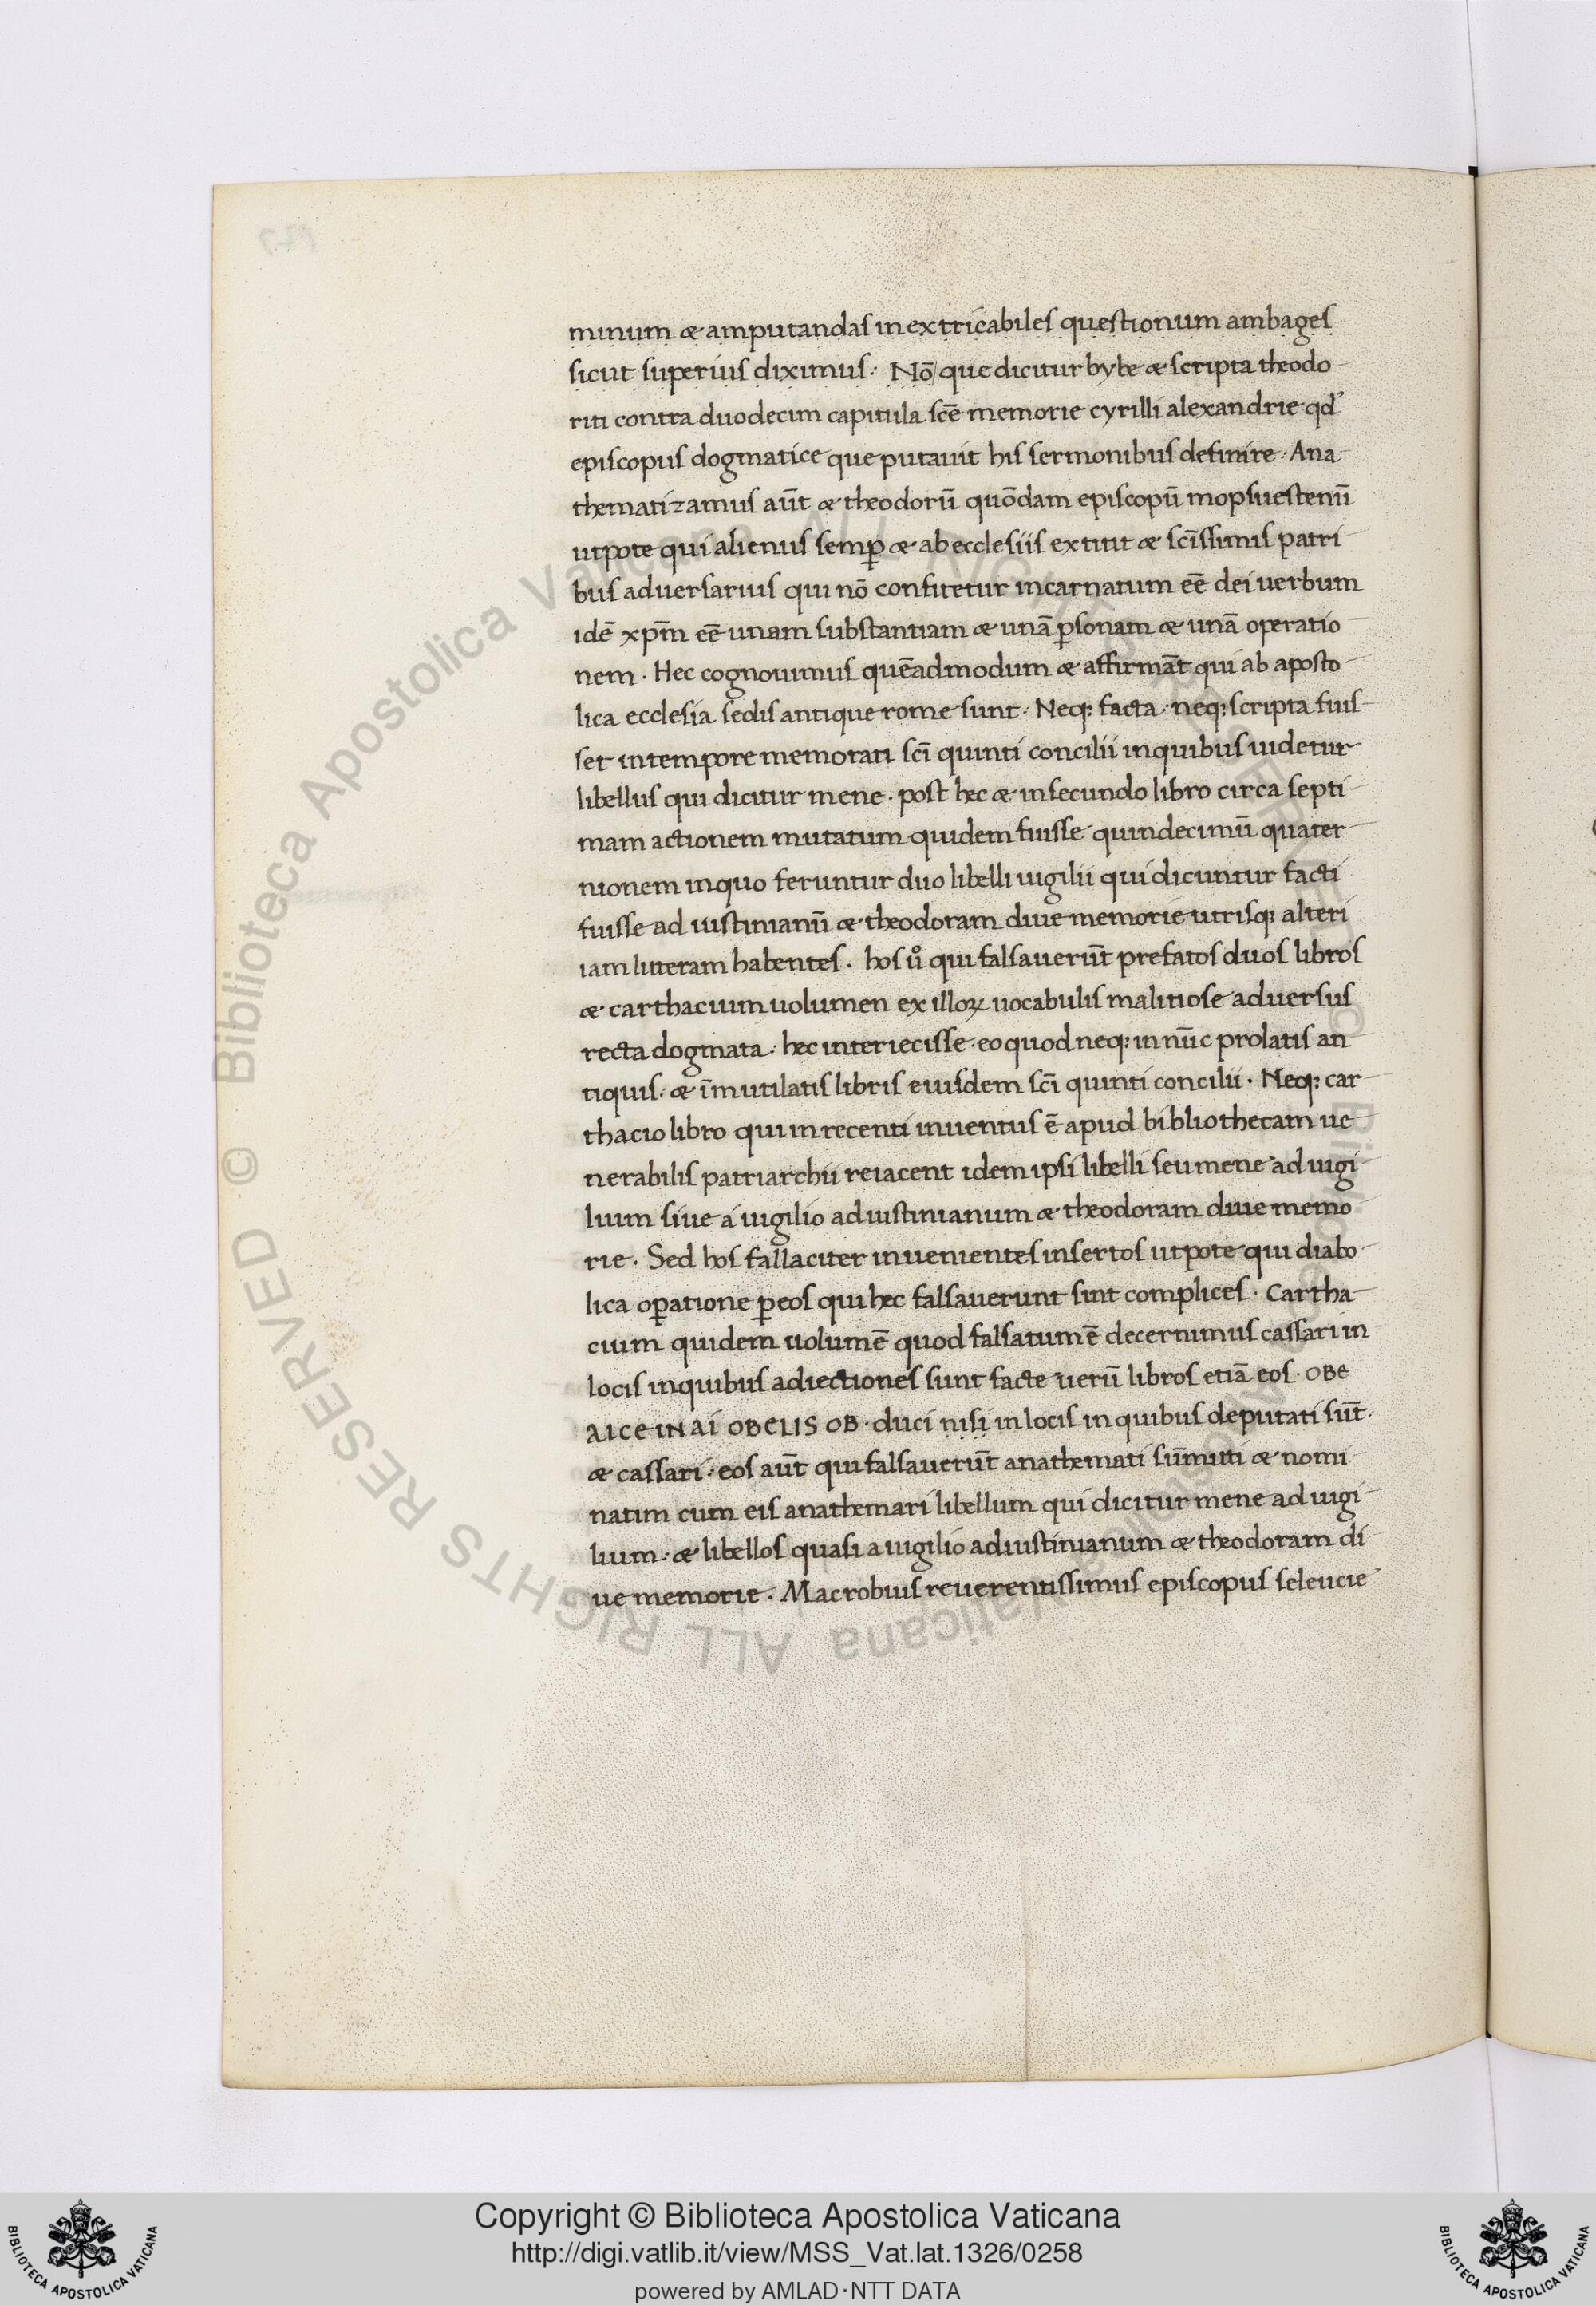 minum & amputandas inextricabiles questionum ambages
sicut superius diximus. Nō que dicitur bybe & scripta theodo
riti contra duodecim capitula scē memorie cyrilli alexandrie qd'
episcopus dogmatice que putauit his sermonibus definire. Ana
thematizamus aūt & theodorū quōdam episcopū mopsuestenū
utpote qui alienus semp̲ & ab ecclesiis extitit & scīssimis patri
bus aduersarius qui nō confitetur incarnatum eē dei uerbum
idē xp̄m eē unam substantiam & unā p̲sonam & unā operatio
nem. Hec cognouimus quēadmodum & affirmāt qui ab aposto
lica ecclesia sedis antique rome sunt. Neq; facta. neq; scripta fuis
set in tempore memorati scī quinti concilii in quibus uidetur
libellus qui dicitur mene. post hec & in secundo libro circa septi
mam actionem mutatum quidem fuisse quindecimū quater
nionem in quo feruntur duo libelli uigilii qui dicuntur facti
fuisse ad iustinianū & theodoram diue memorie utrisq; alteri
iam litteram habentes. hos u̇ qui falsauerūt prefatos duos libros
& carthacium uolumen ex illoꝝ uocabulis malitiose aduersus
recta dogmata. hec interiecisse. eo quod neq; in nūc prolatis an
tiquis. & īmutilatis libris eiusdem scī quinti concilii. Neq; car
thacio libro qui in recenti inuentus ē apud bibliothecam ue
nerabilis patriarchii reiacent idem ipsi libelli seu mene ad uigi
lium siue a uigilio ad iustinianum & theodoram diue memo
rie. Sed hos fallaciter inuenientes insertos utpote qui diabo
lica op̲atione p̲ eos qui hec falsauerunt sint complices. Cartha
cium quidem uolumē quod falsatum ē decernimus cassari in
locis in quibus adiectiones sunt facte uerū libros etiā eos. OBE
AICE IN AI OBELIS OB. duci nisi in locis in quibus deputati sūt.
& cassari. eos aūt qui falsauerūt anathemati sūmitti & nomi
natim cum eis anathemari libellum qui dicitur mene ad uigi
lium. & libellos quasi a uigilio ad iustinianum & theodoram di
ue memorie. Macrobius reuerentissimus episcopus seleucie
© Biblioteca Apostolica Vaticana ALL RIGHTS RESERVED © Biblioteca Apostolica Vaticana ALL RIGHTS RESERVED
BIBLIOTECA APOSTOLICA VATICANA
Copyright © Biblioteca Apostolica Vaticana
http://digi.vatlib.it/view/MSS_Vat.lat.1326/0258
powered by AMLAD·NTT DATA
BIBLIOTECA APOSTOLICA VATICANA